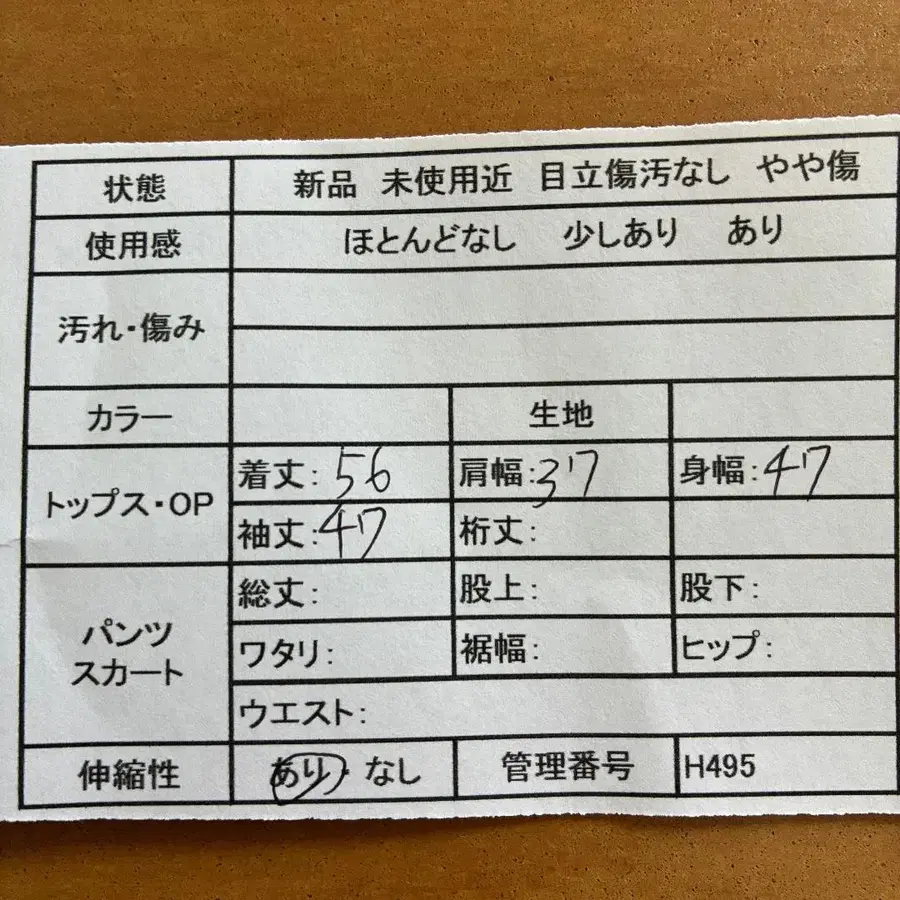 状態 新品 未使用近 目立傷汚なし やや傷
使用感 ほとんどなし 少しあり あり
汚れ・傷み
カラー 生地
トップス・OP
着丈:56 肩幅:37 身幅:47
袖丈:47 裄丈:
パンツ
スカート
総丈: 股上: 股下:
ワタリ: 裾幅: ヒップ:
ウエスト:
伸縮性 あり・なし 管理番号 H495